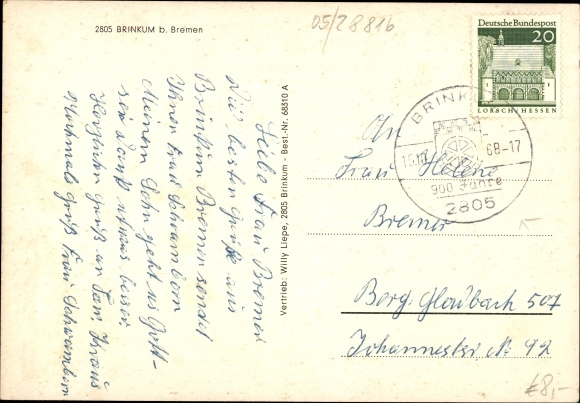 2805 BRINKUM b. Bremen
05/28816
Deutsche Bundespost
20
LORSCH/HESSEN
BRINKUM
68-17
900 Jahre
2805
Liebe Frau Bremer
Die besten Grüße aus
Brinkum Bremen sendet
Ihnen Frau Schwamborn
Meinem Sohn geht es Gott-
sei Dank etwas besser.
Herzlichen Gruß an Fam. Kraus
Nochmals Gruß Frau Schwamborn
Vertrieb: Willy Liepe, 2805 Brinkum - Best.-Nr. 68310 A
An
Frau Helene
Bremer
Berg. Gladbach 507
Johannesstr. Nr 92
€8,-